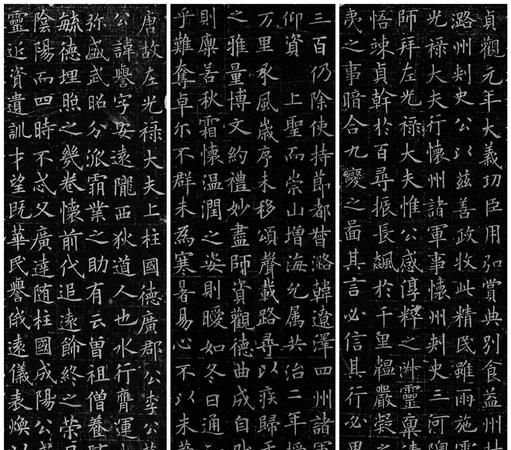 貞觀元年大義功臣用弘賞典別食益州封
潞州刺史公以茲善政牧此精民雖雨施
光禄大夫行懷州諸軍事懷州刺史三河
師拜左光禄大夫惟公感淳粹之靈稟
悟竦貞幹於百尋振長飆於千里嚴凝之
夷之事暗合九變之啚其言必信其行必
三百仍除使持節都督潞韓遼澤四州諸軍
仰資上聖而崇山增海允屬共治二年
万里承風歲序未移頌聲載路尋以疾歸于
之雅量博文約禮妙盡師資觀德曲成自
則廪若秋霜懷温潤之姿則曖如冬日通
乎難奪卓尔不群未為寒暑易心不以未
唐故左光禄大夫上柱國德廣郡公李公
公諱譽字安遠隴西狄道人也水行膺運
弥盛貳昭公派霸業之助有云曾祖僧養
毓德埋照之幾卷懷前代追遠飾終之榮
陰陽而四時不忒父廣達随柱國成陽公
靈延資遺訓才望既華民譽俄遠儀表煥以